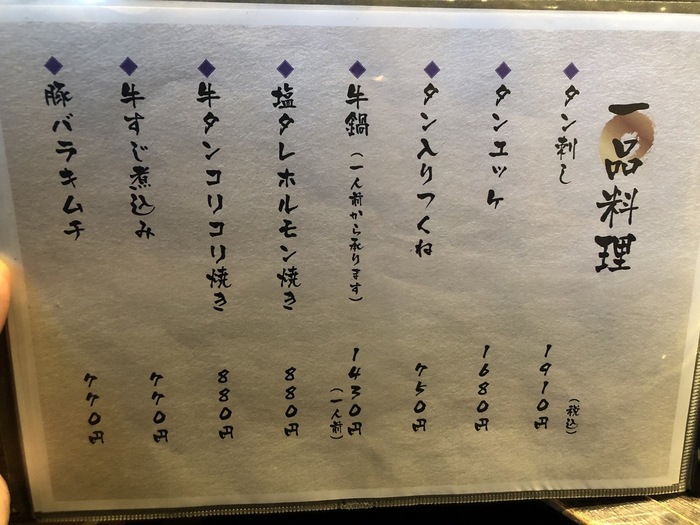 一品料理
タン刺し 1910円(税込)
タンユッケ 1680円
タン入りつくね 750円
牛鍋(一人前から承ります) 1430円(一人前)
塩タレホルモン焼き 880円
牛タンコリコリ焼き 880円
牛すじ煮込み 770円
豚バラキムチ 770円